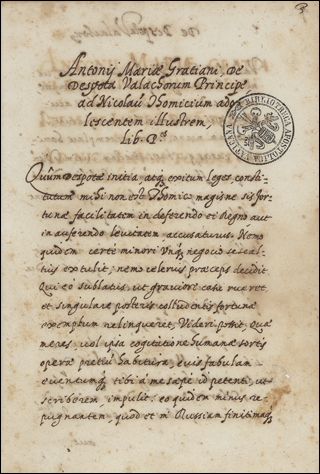 Antonij Mariæ Gratiani, De
Despota Valachorum Principe
ad Nicolaũ Thomicium ado
lescentem illustrem,
Lib. P.us
Quũm Despotæ initia atq, exitum leges, consti-
tutum mihi non est Thomici magisne sis for-
tunæ facilitatem in deferendo ei Regno aut
in auferendo levitatem accusaturus. Nemo
quidem certè minori unq, negocio se se al-
tius extulit, nemo celerius præceps decidit.
Qui eò sublatus, ut graviore casu rueret
et singulare posteris colludentis fortunæ
exemplum relinqueret, Videri possit. Quæ
me res, vel ipsa cogitatione humanæ sortis
operæ pretiũ habitura, eius fabulam
eventumq, tibi à me sæpe id petenti, ut
scriberem impulit. eo quidem minus re-
pugnantem, quod et in Russiam finitimaq,
BIBLIOTHECA APOSTOLICA VATICANA